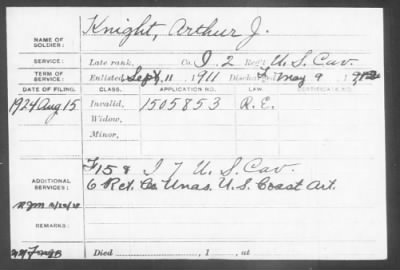 NAME OF SOLDIER: Knight, Arthur J.
SERVICE: Late rank, Co. I, 2 Reg't U.S. Cav.
TERM OF SERVICE: Enlisted Sept, 11 1911 Discharged May 9, 1912
DATE OF FILING. CLASS. APPLICATION NO. LAW. CERTIFICATE NO.
1924 Aug 15 Invalid, 1505853 R.E.
Widow,
Minor,
ADDITIONAL SERVICES: I 7 U.S. Cav.
6 Rct. Co. Unas. U.S. Coast Art.
Died , 1 , at